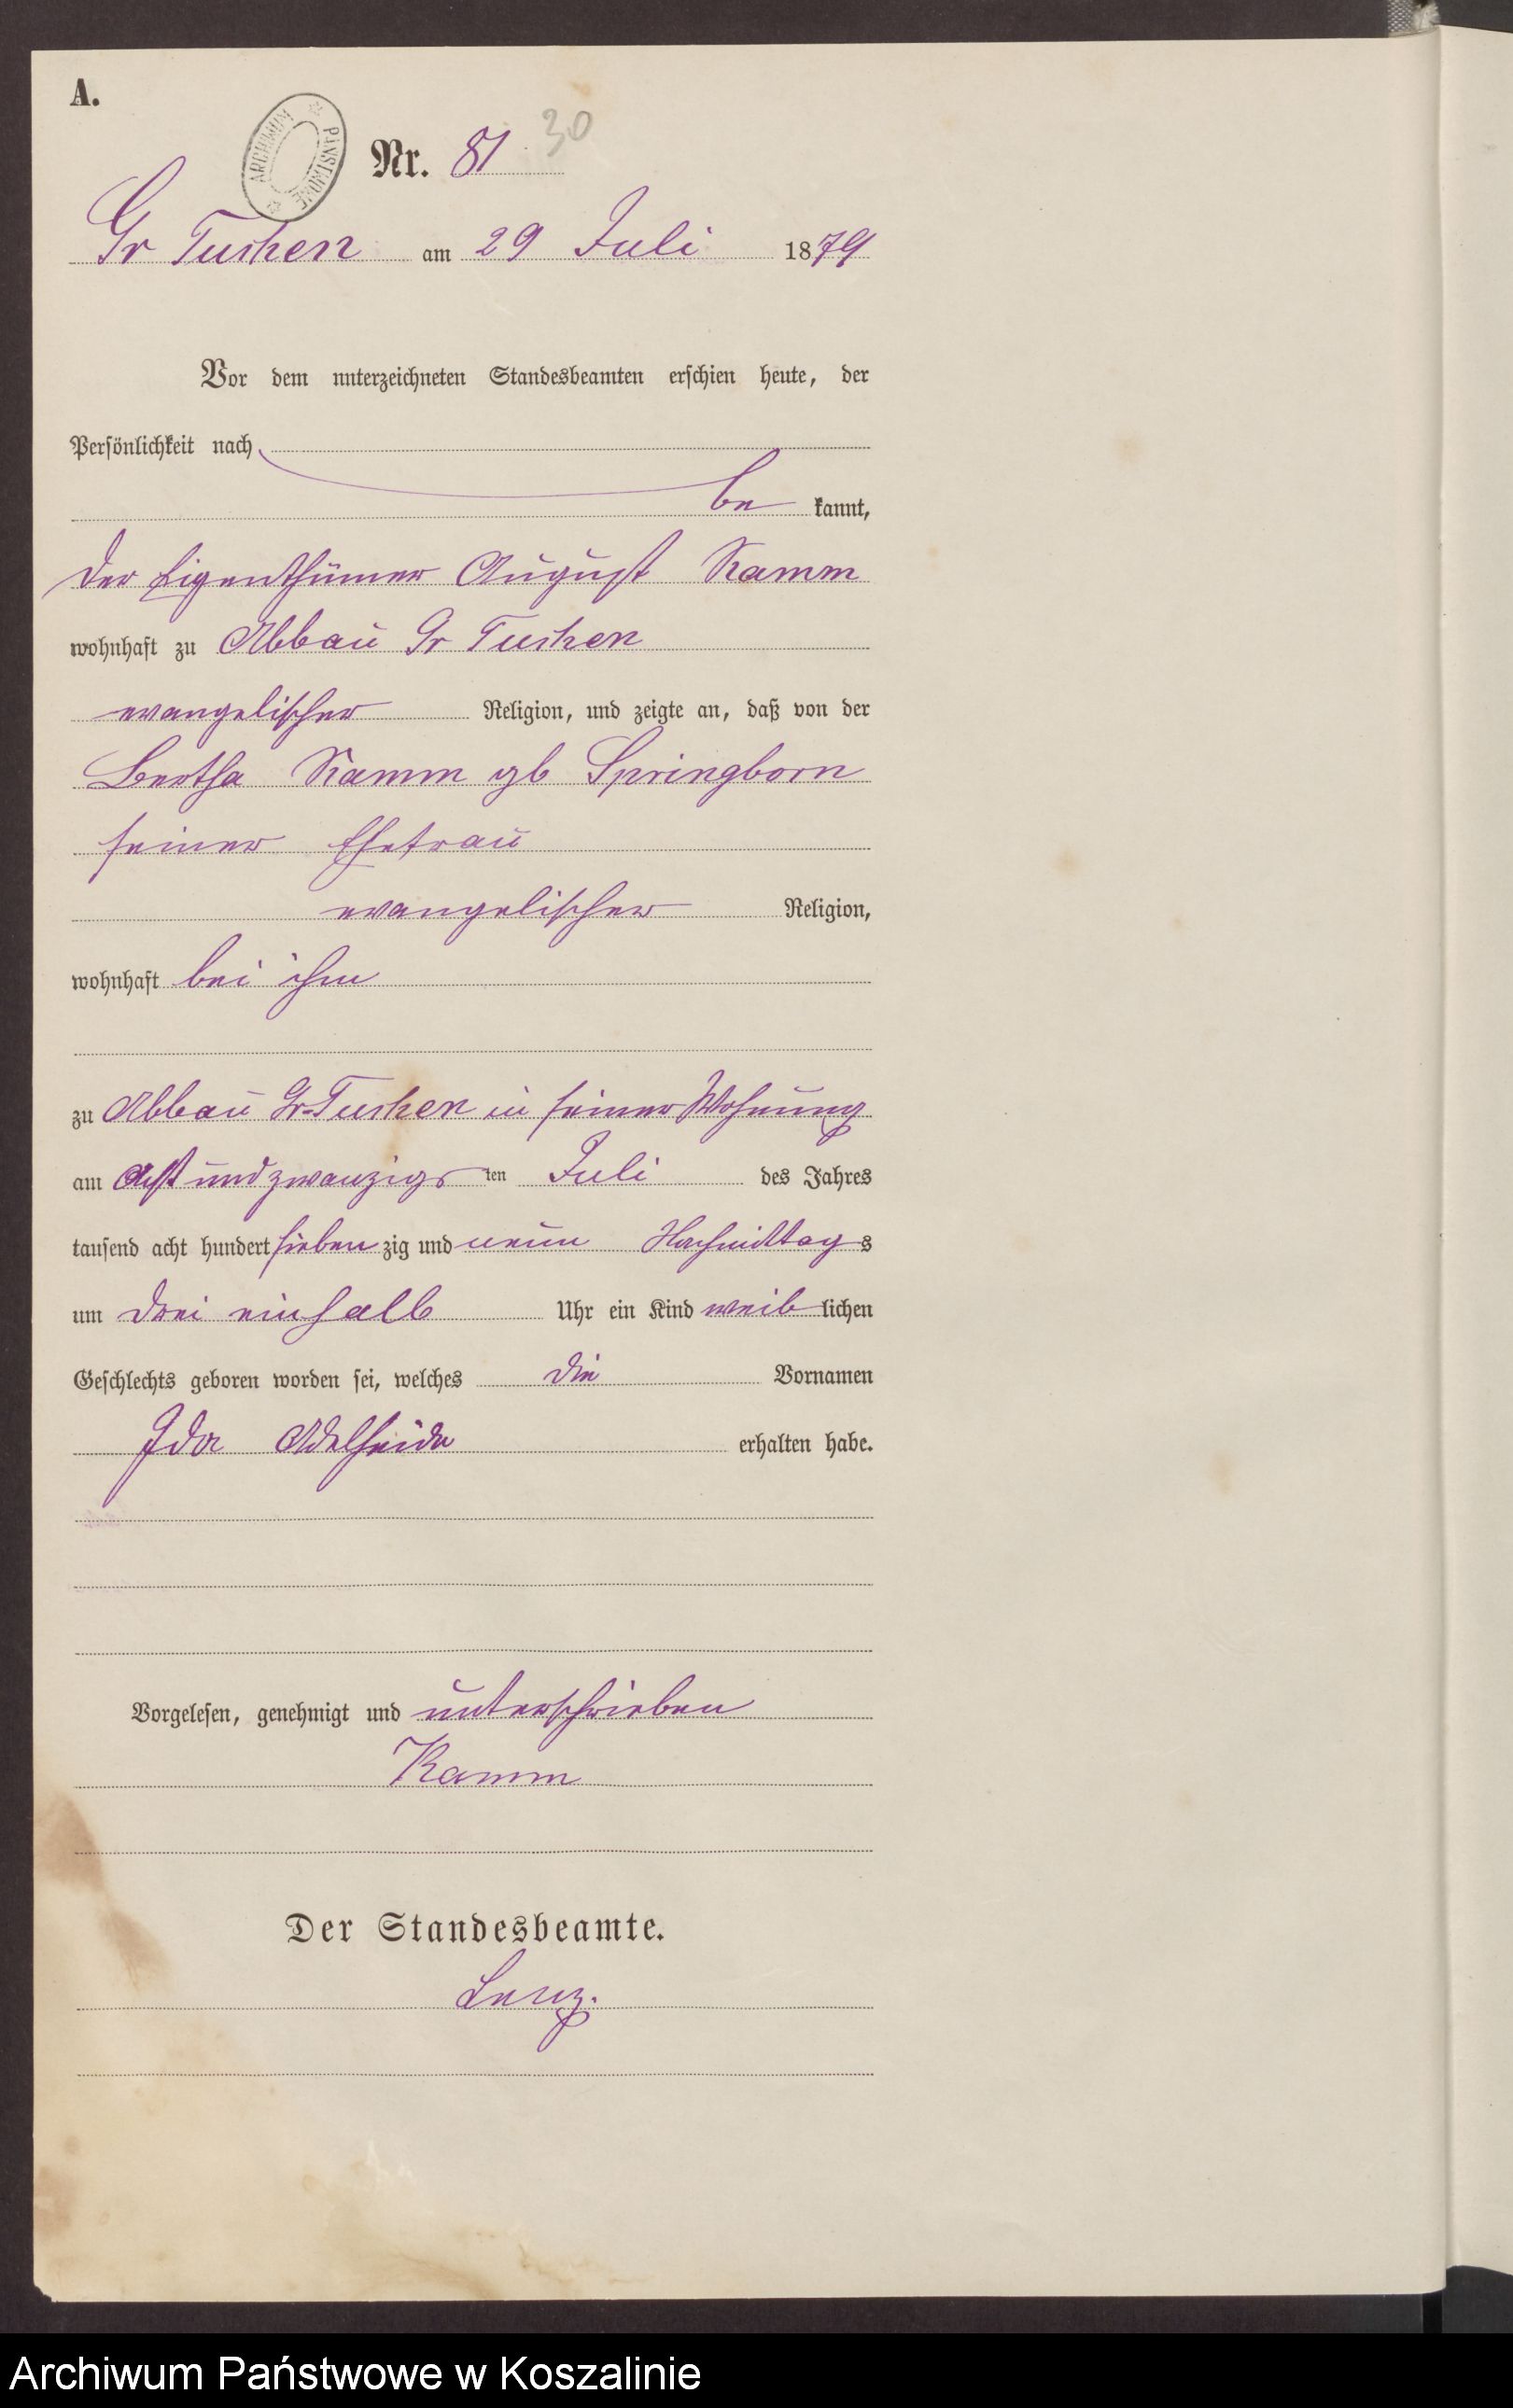 A.
ARCHIWUM PAŃSTWOWE
Nr. 81 30
Gr Tuchen am 29 Juli 1879
Vor dem unterzeichneten Standesbeamten erschien heute, der
Persönlichkeit nach
be kannt,
der Eigenthümer August Kamm
wohnhaft zu Abbau Gr Tuchen
evangelischer Religion, und zeigte an, daß von der
Bertha Kamm gb Springborn
seiner Ehefrau
evangelischer Religion,
wohnhaft bei ihm
zu Abbau Gr-Tuchen in seiner Wohnung
am Acht und zwanzigs ten Juli des Jahres
tausend acht hundert sieben zig und neun Nachmittag s
um drei einhalb Uhr ein Kind weib lichen
Geschlechts geboren worden sei, welches die Vornamen
Ida Adelheide erhalten habe.
Vorgelesen, genehmigt und unterschrieben
Kamm
Der Standesbeamte.
Lenz.
Archiwum Państwowe w Koszalinie